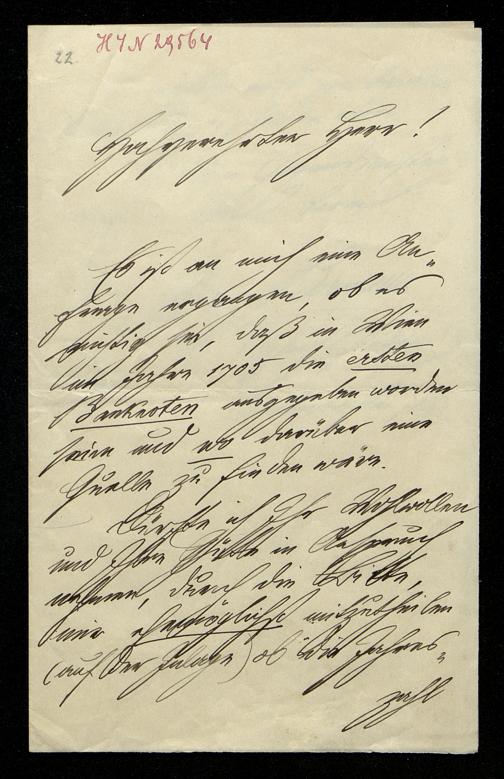 22.
HIN 29564
Hochverehrter Herr!
Es ist an mich eine An-
frage ergangen, ob es
richtig sei, daß in Wien
im Jahre 1705 die ersten
Banknoten ausgegeben worden
seien und wo darüber eine
Quelle zu finden wäre.
Dürfte ich Ihr Wohlwollen
und Ihre Güte in Anspruch
nehmen, durch die Bitte,
mir ehemöglichst mitzutheilen
(auf der Zulage) ob die Jahres-
zahl